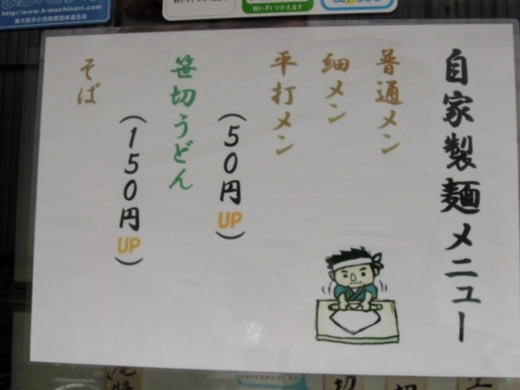 自家製麺メニュー
普通メン
細メン
平打メン
(50円UP)
笹切うどん
(150円UP)
そば
http://www.h-machinavi.com/
Wi-Fi つかえます
切